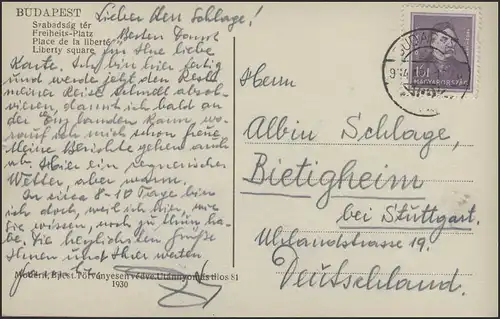 BUDAPEST
Szabadság tér
Freiheits-Platz
Place de la liberté
Liberty square
Lieber Herr Schlage!
Besten Dank
für Ihre liebe
Karte. Ich bin hier fertig
und werde jetzt den Rest
meiner Reise schnell absol-
vieren, damit ich bald an
der Enz landen kann, wo-
rauf ich mich schon freue.
Meine Berichte gehen auch
ab. Hier ein regnerisches
Wetter, aber warm.
In circa 8-10 Tage bin
ich doch, weil ich hier, wie
Sie wissen, noch zu thun ha-
be. Die herzlichsten Grüße
Ihnen und Ihrer werten
BUDAPEST
MAGYARORSZÁG
Herrn
Albin Schlage,
Bietigheim
bei Stuttgart.
Uhlandstrasse 19.
Deutschland.
1930